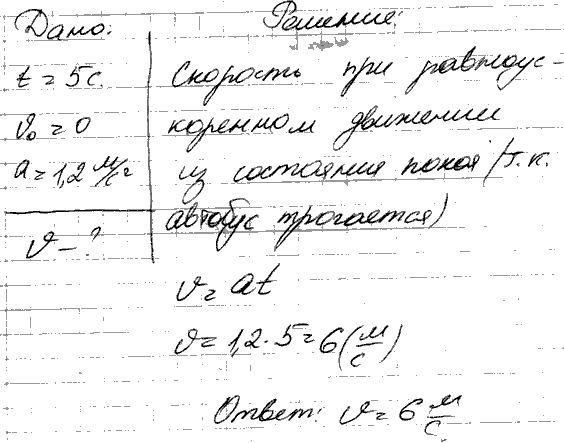 Дано:
t = 5с
υ₀ = 0
a = 1,2 м/с²
υ – ?
Решение:
Скорость при равноус-
коренном движении
из состояния покоя (т.к.
автобус трогается)
υ = at
υ = 1,2 · 5 = 6 (м/с)
Ответ: υ = 6 м/с